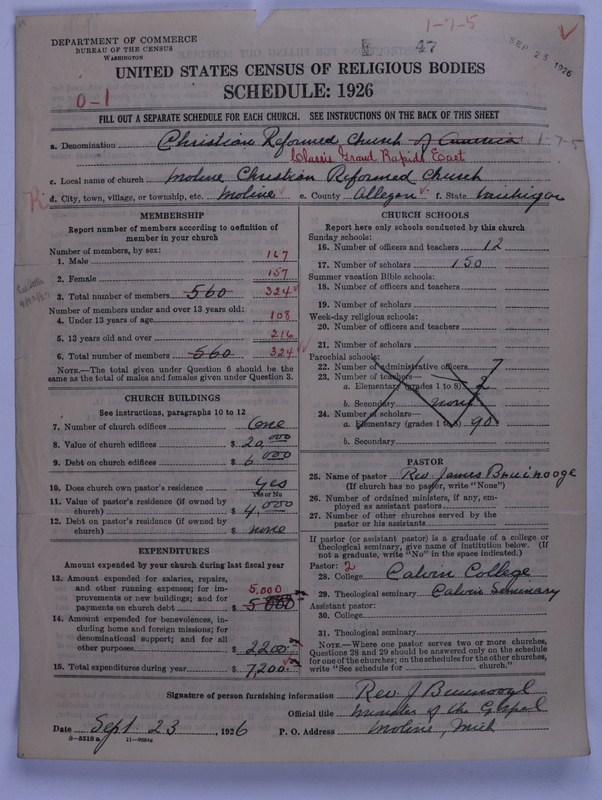 1-7-5
47
SEP 25 1926
DEPARTMENT OF COMMERCE
BUREAU OF THE CENSUS
WASHINGTON
UNITED STATES CENSUS OF RELIGIOUS BODIES
0-1
SCHEDULE: 1926
FILL OUT A SEPARATE SCHEDULE FOR EACH CHURCH. SEE INSTRUCTIONS ON THE BACK OF THIS SHEET
a. Denomination Christian Reformed Church of America 1-7-5
Classis Grand Rapids East
c. Local name of church Moline Christian Reformed Church
d. City, town, village, or township, etc. Moline e. County Allegan f. State Michigan
MEMBERSHIP
Report number of members according to definition of
member in your church
Number of members, by sex:
1. Male 167
2. Female 157
3. Total number of members 560 324
Number of members under and over 13 years old:
4. Under 13 years of age 108
5. 13 years old and over 216
6. Total number of members 560 324
NOTE.—The total given under Question 6 should be the
same as the total of males and females given under Question 3.
CHURCH BUILDINGS
See instructions, paragraphs 10 to 12
7. Number of church edifices One
8. Value of church edifices $ 20,000
9. Debt on church edifices $ 6000
10. Does church own pastor's residence Yes
Yes or No
11. Value of pastor's residence (if owned by
church) $ 4,000
12. Debt on pastor's residence (if owned by
church) $ none
EXPENDITURES
Amount expended by your church during last fiscal year
13. Amount expended for salaries, repairs,
and other running expenses; for im-
provements or new buildings; and for
payments on church debt $ 5,000 5000
14. Amount expended for benevolences, in-
cluding home and foreign missions; for
denominational support; and for all
other purposes $ 2200
15. Total expenditures during year $ 7,200
CHURCH SCHOOLS
Report here only schools conducted by this church
Sunday schools:
16. Number of officers and teachers 12
17. Number of scholars 150
Summer vacation Bible schools:
18. Number of officers and teachers
19. Number of scholars
Week-day religious schools:
20. Number of officers and teachers
21. Number of scholars
Parochial schools:
22. Number of administrative officers 7
23. Number of teachers—
a. Elementary (grades 1 to 8) 2
b. Secondary none
24. Number of scholars—
a. Elementary (grades 1 to 8) 90
b. Secondary
PASTOR
25. Name of pastor Rev. James Bruinooge
(If church has no pastor, write "None")
26. Number of ordained ministers, if any, em-
ployed as assistant pastors
27. Number of other churches served by the
pastor or his assistants
If pastor (or assistant pastor) is a graduate of a college or
theological seminary, give name of institution below. (If
not a graduate, write "No" in the space indicated.)
Pastor: 2
28. College Calvin College
29. Theological seminary Calvin Seminary
Assistant pastor:
30. College
31. Theological seminary
NOTE.—Where one pastor serves two or more churches,
Questions 28 and 29 should be answered only on the schedule
for one of the churches; on the schedules for the other churches,
write "See schedule for church."
Signature of person furnishing information Rev. J. Bruinooge
Official title Minister of the Gospel
Date Sept 23, 1926 P. O. Address Moline, Mich
8-5518 a 11-9084a